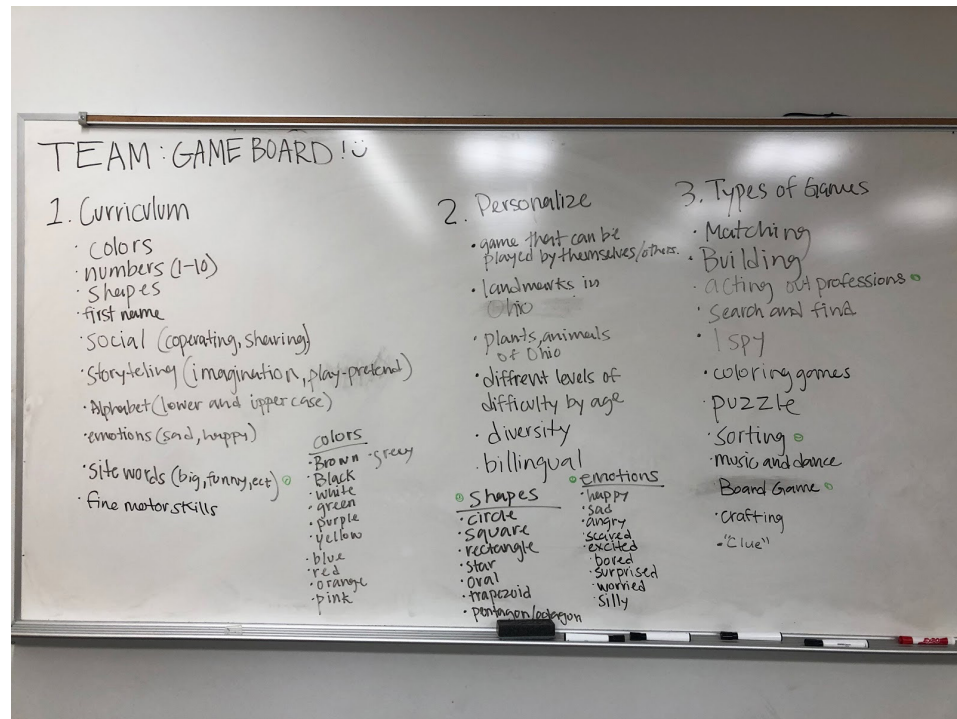 TEAM: GAME BOARD! :)
1. Curriculum
· colors
· numbers (1-10)
· shapes
· first name
· social (coperating, sharing)
· Storyteling (imagination, play-pretend)
· Alphabet (lower and uppercase)
· emotions (sad, happy)
· site words (big, funny, ect)
· fine motor skills
colors
· Brown · grey
· Black
· white
· green
· purple
· yellow
· blue
· red
· orange
· pink
2. Personalize
· game that can be
played by themselves/others.
· landmarks in
Ohio
· plants, animals
of Ohio
· diffrent levels of
difficulty by age
· diversity
· billingual
shapes
· circle
· square
· rectangle
· star
· oval
· trapezoid
· pentagon/octagon
emotions
· happy
· sad
· angry
· scared
· excited
· bored
· surprised
· worried
· silly
3. Types of Games
· Matching
· Building
· acting out professions
· Search and find
· I spy
· coloring games
· puzzle
· sorting
· music and dance
· Board Game
· crafting
· "Clue"